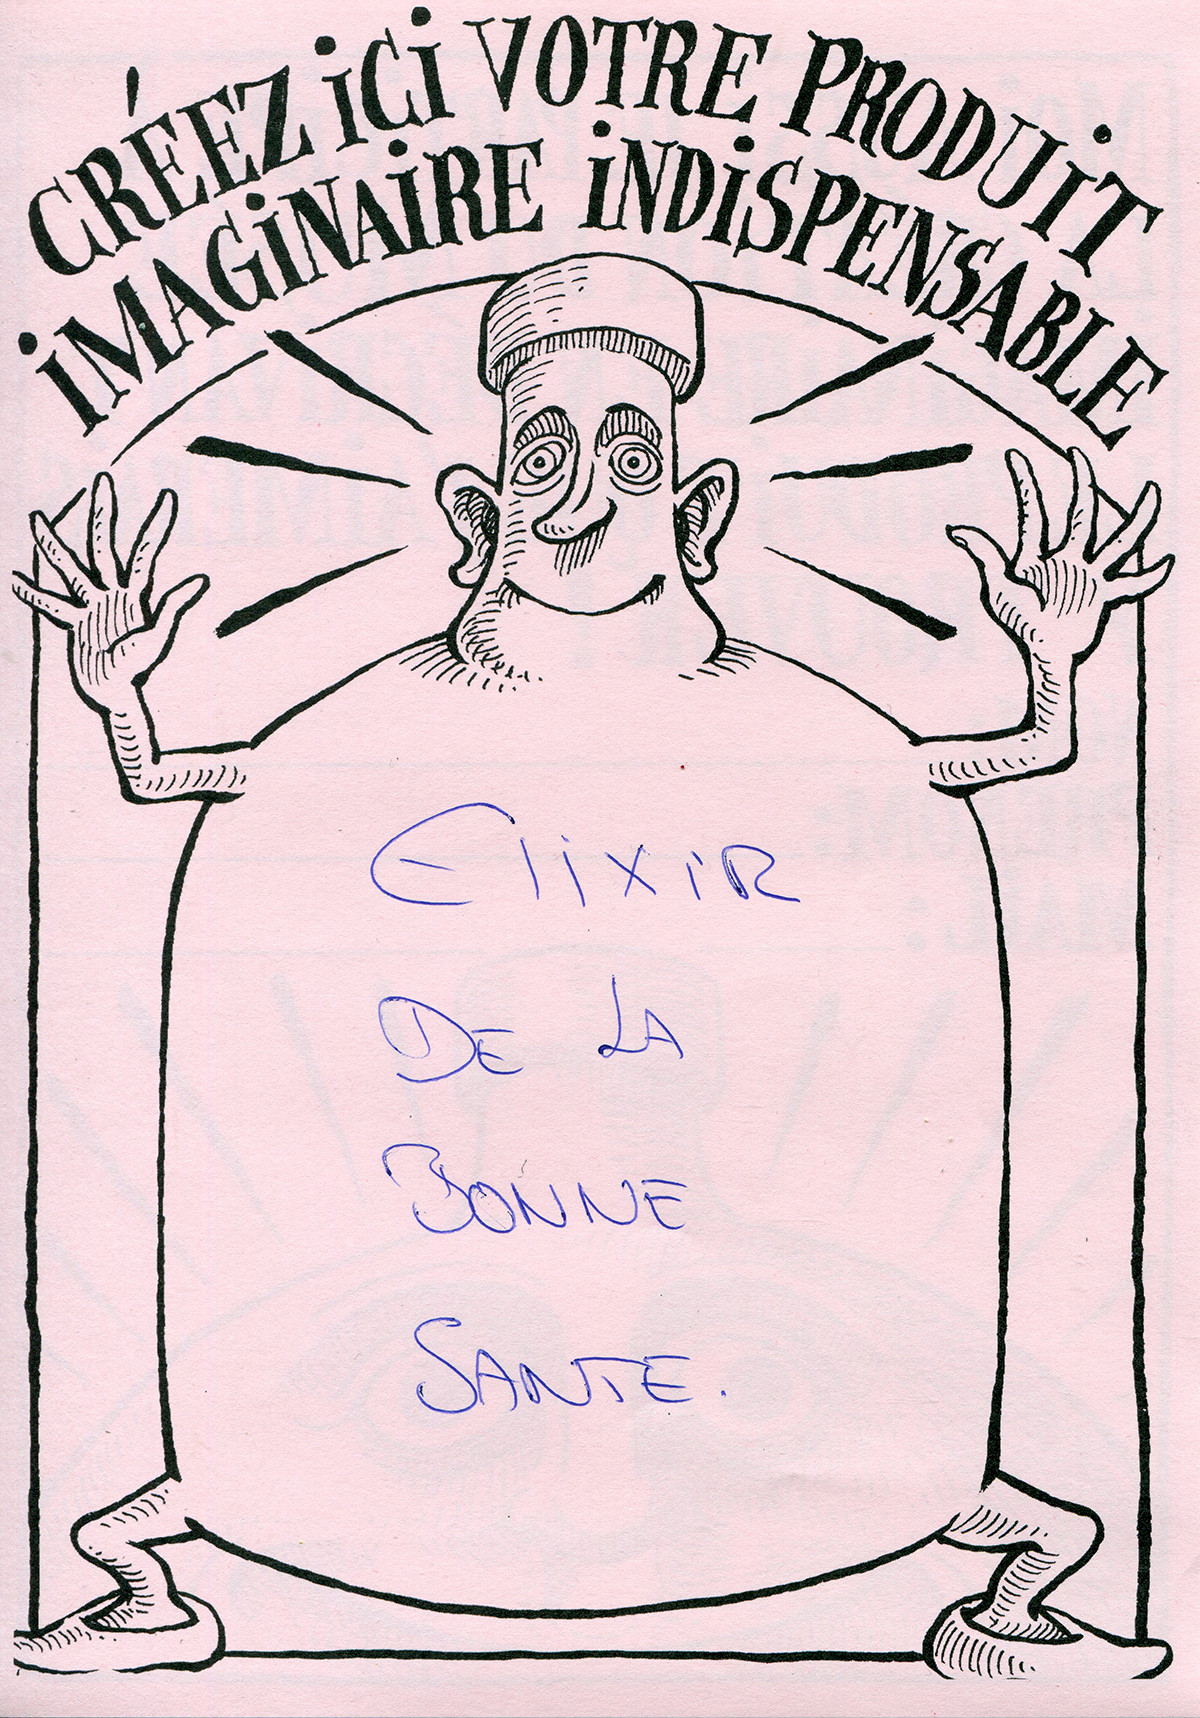 CRÉEZ iCi VOTRE PRODUiT
iMAGiNAiRE iNDiSPENSABLE
ElixiR
DE LA
BONNE
SANTE.